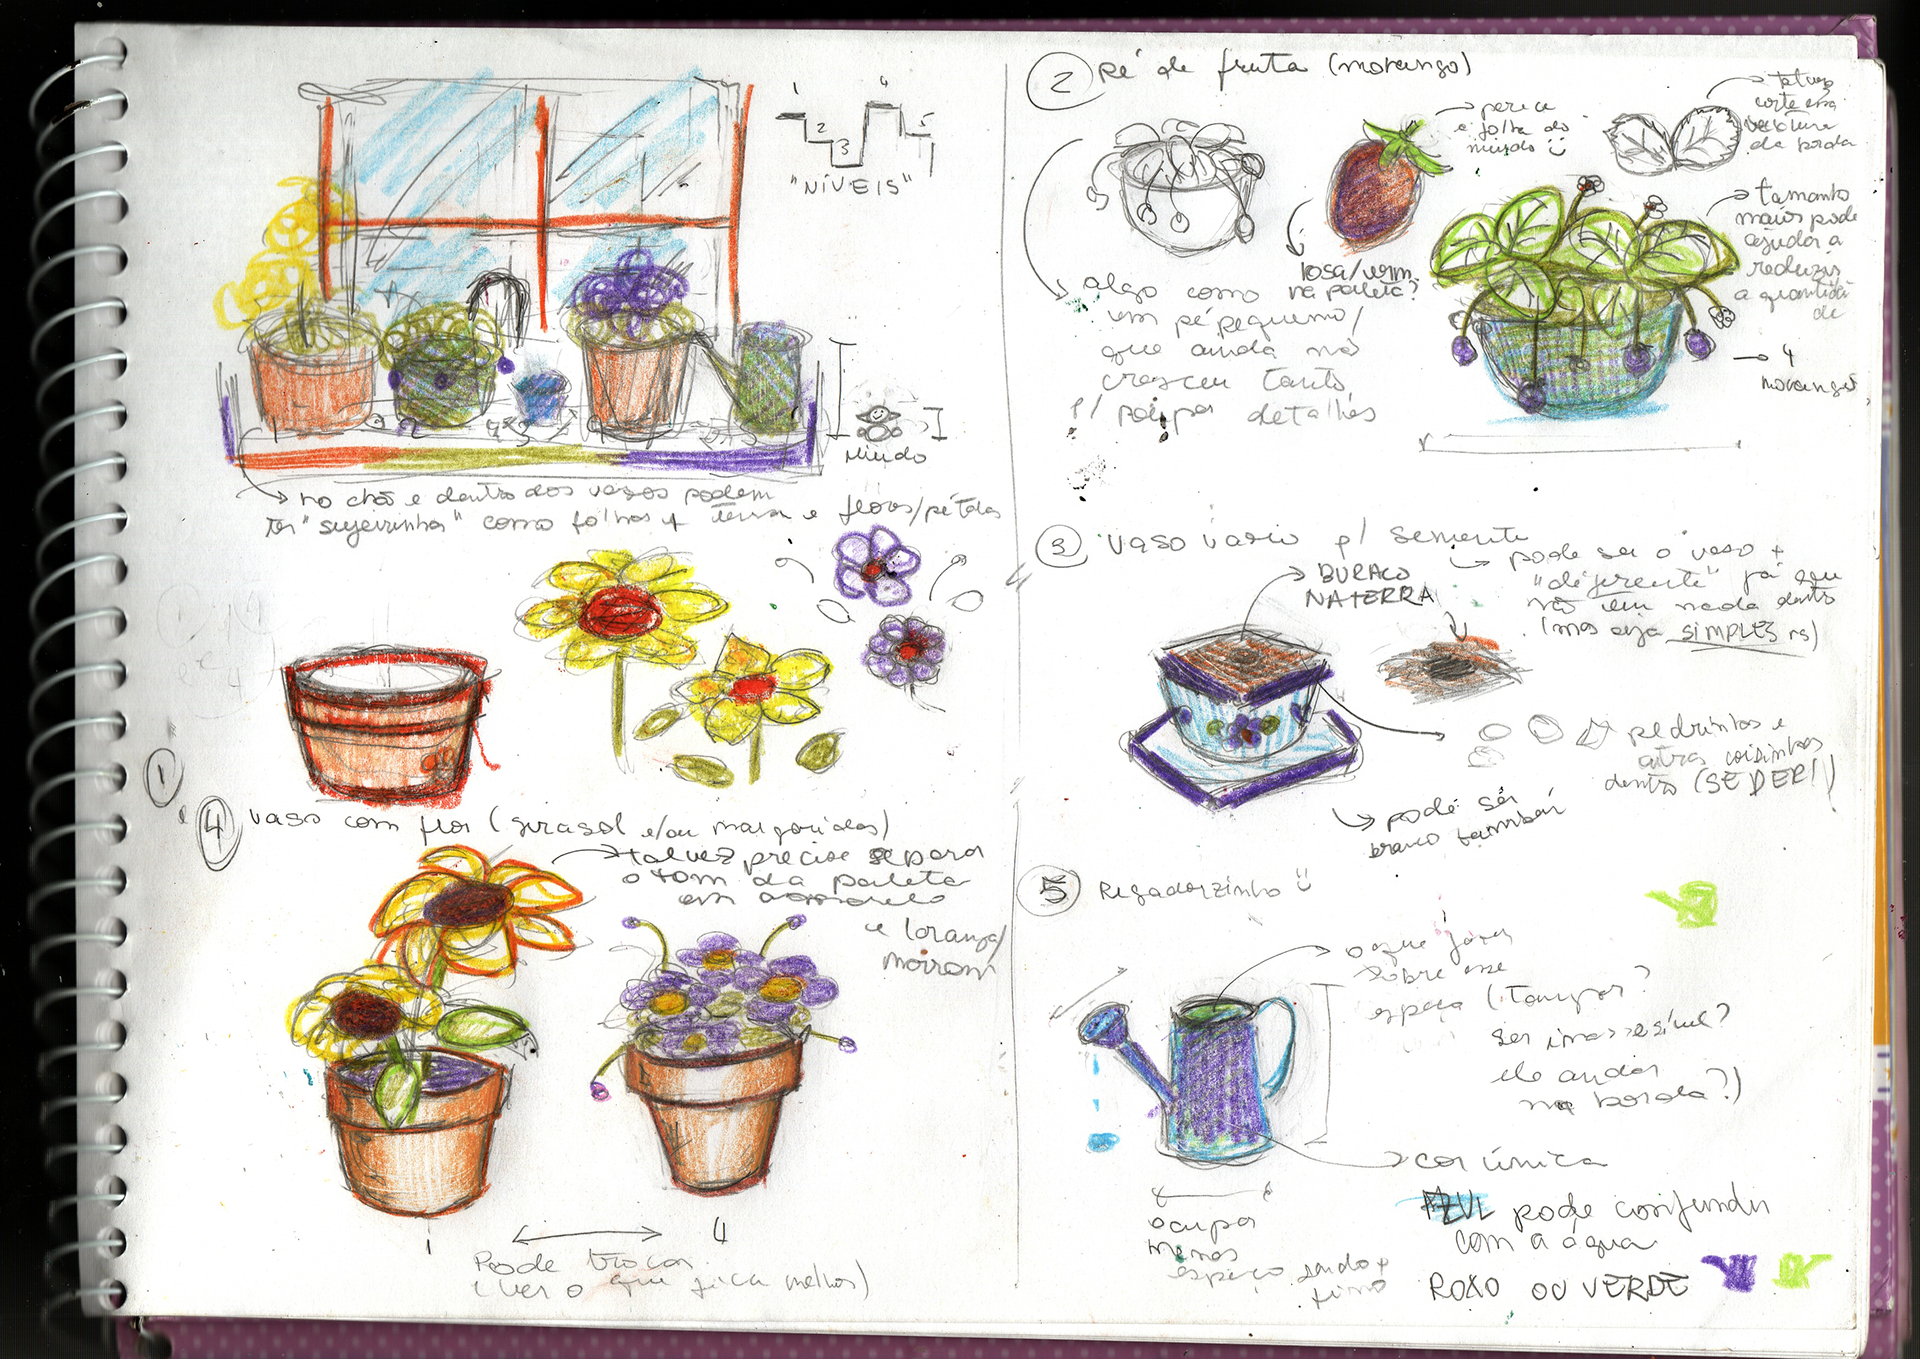 1
2
3
4
5
"NÍVEIS"
Miudo
no chão e dentro dos vasos podem
ter "sujeirinhas" como folhas + terra e flores/pétalas
1
4 vaso com flor (girassol e/ou margaridas)
talvez precise separar
o tom da paleta
em amarelo
e laranja/
marrom
1
4
Pode trocar
(ver o que fica melhor)
2 Pé de fruta (morango)
parece
a folha do
miudo
talvez
corte essa
textura
da borda
rosa/verm.
na paleta?
tamanho
maior pode
ajudar a
reduzir
a quantida
de
4
morangos
algo como
um pé pequeno/
que ainda não
cresceu tanto
p/ poupar detalhes
3 vaso vazio p/ semente
pode ser o vaso +
"diferente" já que
não tem nada dentro
(mas seja SIMPLES rs)
BURACO
NA TERRA
pedrinhas e
outras coisinhas
dentro (SE DER!)
pode ser
branco também
5 Regadorzinho
o que fazer
sobre esse
espaço (tampar?
ser inacessível?
ele andar
na borda?)
cor única
AZUL pode confundir
com a água
ROXO OU VERDE
ocupa
menos
espaço, sendo +
fino